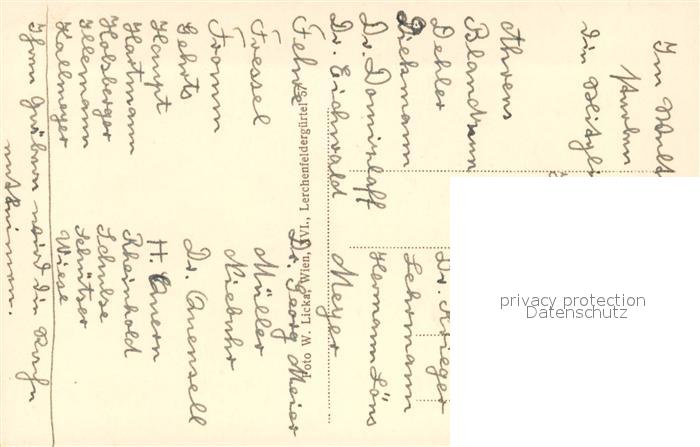 Im Welt
die Mitgli
Ahrens
Blandzun
Dehler
Diekmann
Dr. Dominlaff
Dr. Eichwald
Fehne
Fressel
Fromm
Gehrts
Haupt
Hartmann
Holzberger
Illemann
Kallmeyer
Dr. Krieger
Lehrmann
Hermann Löns
Meyer
Dr. Georg Meier
Müller
Niebuhr
Dr. Quensell
H. Quern
Rheinhold
Schulse
Schützer
Wiese
Ihren Gräbern wird die Ruhe
Foto W. Licka, Wien, XVI., Lerchenfeldergürtel
privacy protection
Datenschutz